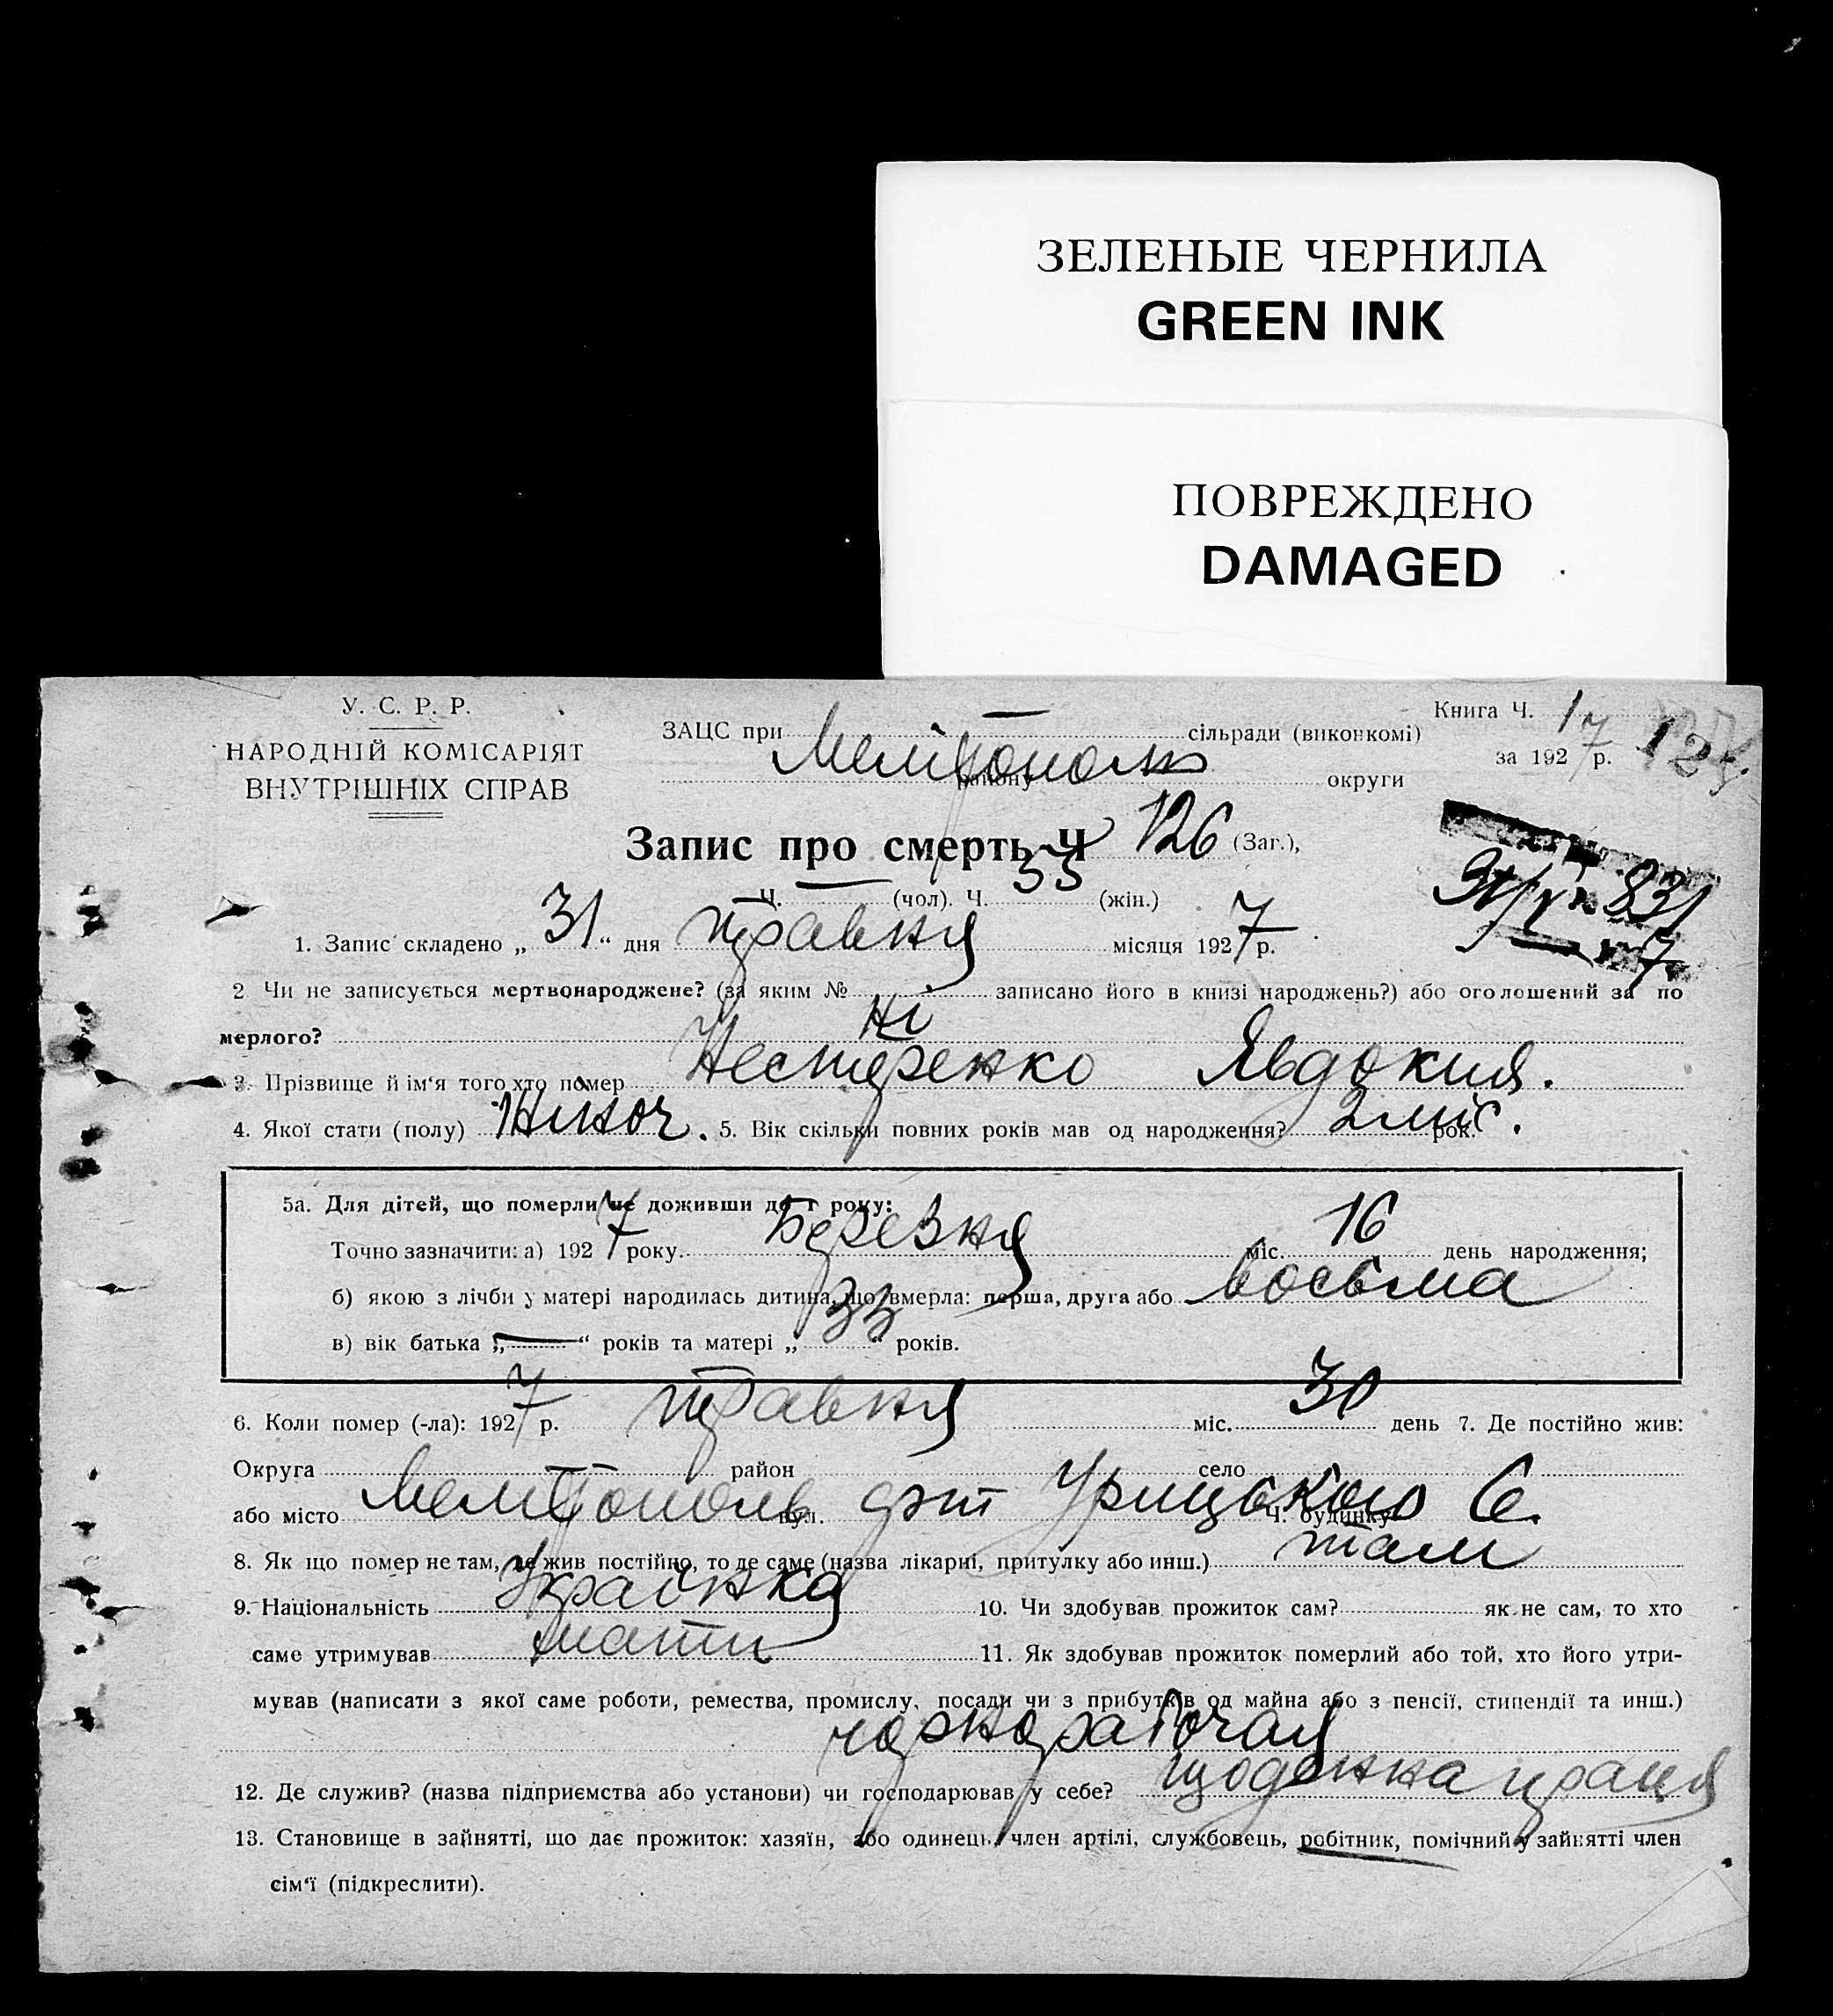 ЗЕЛЕНЫЕ ЧЕРНИЛА
GREEN INK
ПОВРЕЖДЕНО
DAMAGED
У. С. Р. Р.
НАРОДНІЙ КОМІСАРІЯТ
ВНУТРІШНІХ СПРАВ
Книга Ч. 1
за 1927 р.
ЗАЦС при — сільради (виконкомі)
Мелітополь району округи
Запис про смерть Ч 126 (Заг.),
Ч. — (чол). Ч. 55 (жін.)
1. Запис складено „31“ дня травня місяця 1927 р.
2 Чи не записується мертвонароджене? (за яким № записано його в книзі народжень?) або оголошений за по
мерлого? Ні
3. Прізвище й ім‘я того хто помер Нестеренко Явдокия.
4. Якої стати (полу) Жиноч. 5. Вік скільки повних років мав од народження? 2 міс. рок.
5а. Для дітей, що померли не доживши до 1 року:
Точно зазначити: а) 1927 року Березня міс. 16 день народження;
б) якою з лічби у матері народилась дитина, що вмерла: перша, друга або восьма
в) вік батька „—“ років та матері „33“ років.
6. Коли помер (-ла): 1927 р. травня міс. 30 день 7. Де постійно жив:
Округа район село
або місто Мелітополь вул. Урицького Ч. будинку 6.
8. Як що помер не там, де жив постійно, то де саме (назва лікарні, притулку або инш.) там
9. Національність Украінка 10. Чи здобував прожиток сам? як не сам, то хто
саме утримував мати 11. Як здобував прожиток померлий або той, хто його утри-
мував (написати з якої саме роботи, ремества, промислу, посади чи з прибутків од майна або з пенсії, стипендії та инш.)
чорнорабочая
12. Де служив? (назва підприємства або установи) чи господарював у себе? щоденна праця
13. Становище в зайнятті, що дає прожиток: хазяїн, або одинець, член артілі, службовець, робітник, помічний у зайнятті член
сім‘ї (підкреслити).